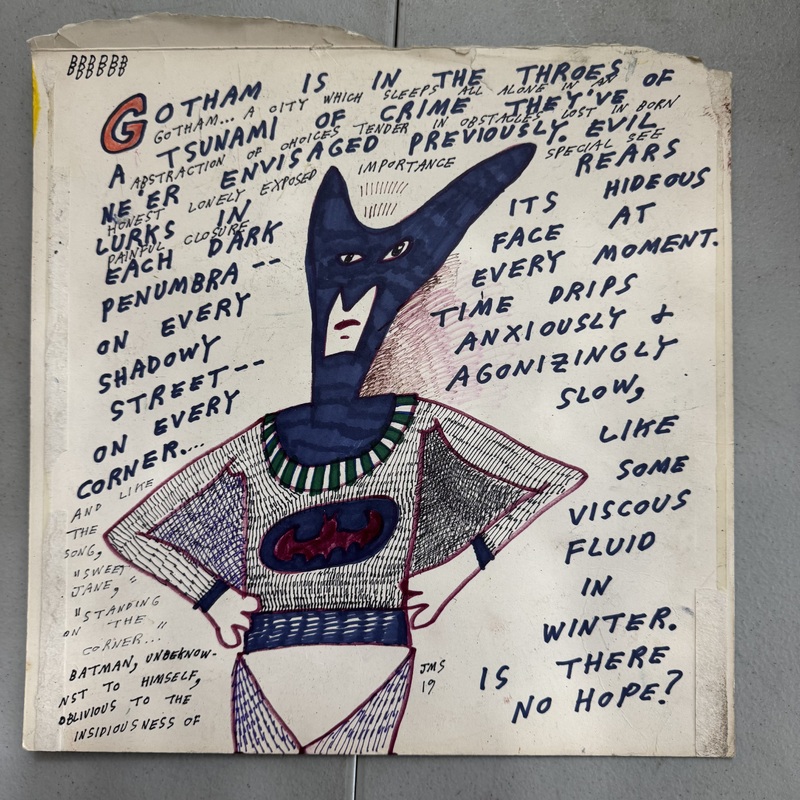 BBBBBB
BBBBBB
GOTHAM IS IN THE THROES OF
GOTHAM... A CITY WHICH SLEEPS ALL ALONE IN AN
A TSUNAMI OF CRIME THEY'VE
ABSTRACTION OF CHOICES TENDER IN OBSTACLES LOST IN BORN
NE'ER ENVISAGED PREVIOUSLY. EVIL
HONEST LONELY EXPOSED IMPORTANCE SPECIAL SEE
LURKS IN
PAINFUL CLOSURE
EACH DARK
PENUMBRA --
ON EVERY
SHADOWY
STREET --
ON EVERY
CORNER....
AND LIKE
THE
SONG,
"SWEET
JANE,"
"STANDING
ON THE
CORNER..."
BATMAN, UNBEKNOW-
NST TO HIMSELF,
OBLIVIOUS TO THE
INSIDIOUSNESS OF
REARS
ITS HIDEOUS
FACE AT
EVERY MOMENT.
TIME DRIPS
ANXIOUSLY &
AGONIZINGLY
SLOW,
LIKE
SOME
VISCOUS
FLUID
IN
WINTER.
IS THERE
NO HOPE?
JMS
19